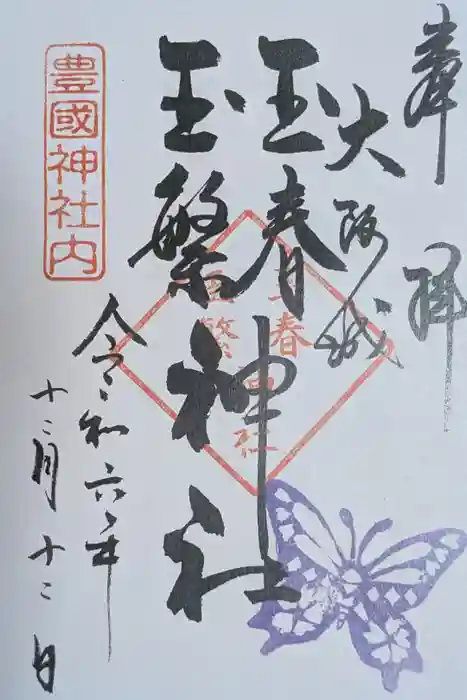 奉拝
大阪城
玉春
玉繁
神社
令和六年
十二月十二日
豊國神社内
玉春
玉繁
神社